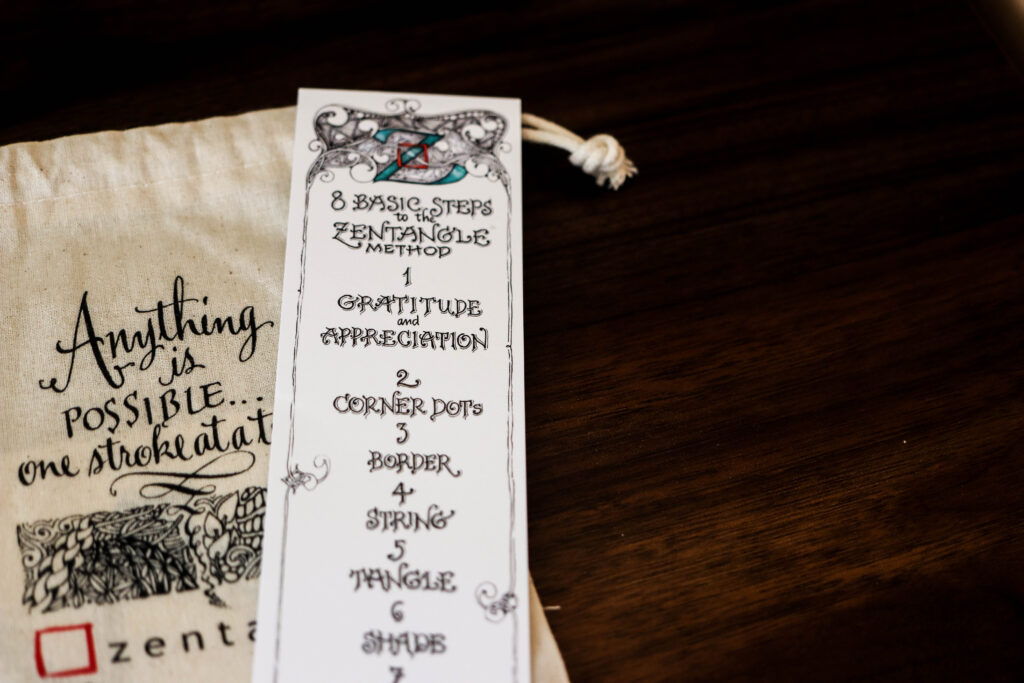 Anything
is
POSSIBLE...
one stroke at a t
zenta
Z
8 BASIC STEPS
to the
ZENTANGLE
METHOD
1
GRATITUDE
and
APPRECIATION
2
CORNER DOTs
3
BORDER
4
STRING
5
TANGLE
6
SHADE
7